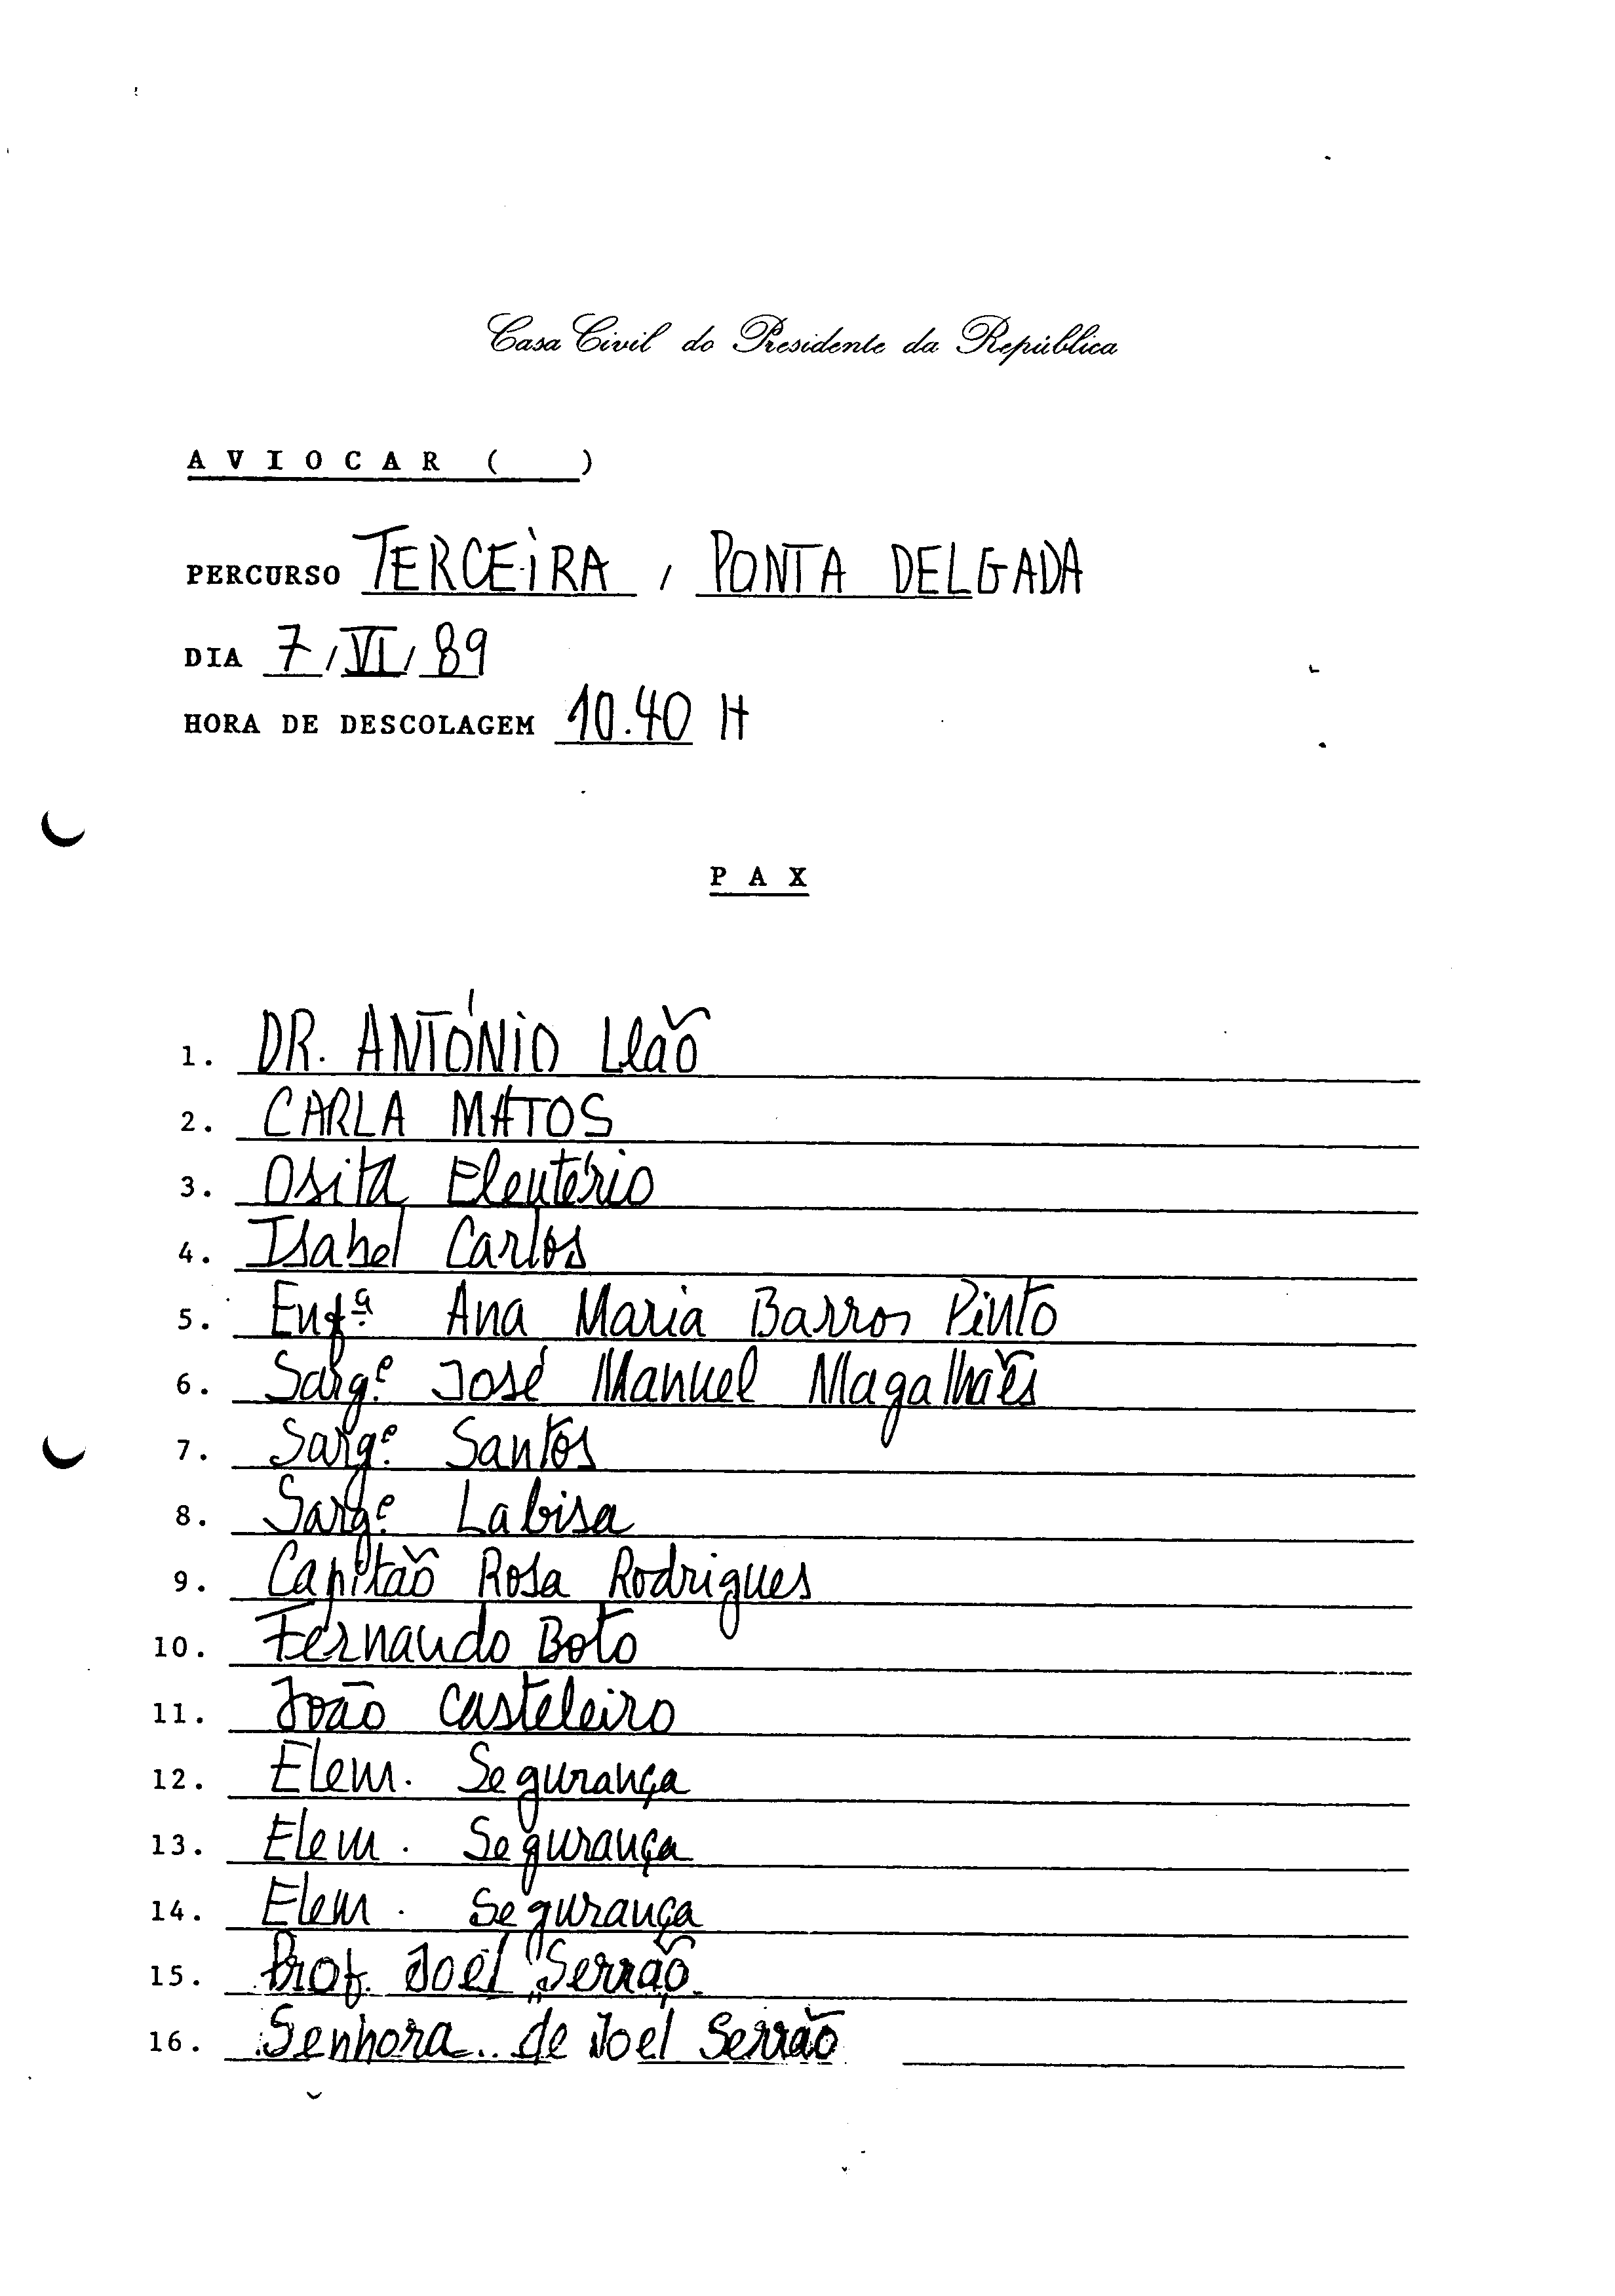 Casa Civil do Presidente da República
AVIOCAR (    )
PERCURSO TERCEIRA / PONTA DELGADA
DIA 7/VI/89
HORA DE DESCOLAGEM 10.40 H
PAX
1. DR. ANTÓNIO Leão
2. CARLA MATOS
3. Osita Eleutério
4. Isabel Carlos
5. Enfª Ana Maria Barros Pinto
6. Sarg.e José Manuel Magalhães
7. Sarg.e Santos
8. Sarg.e Labisa
9. Capitão Rosa Rodrigues
10. Fernando Boto
11. João Casteleiro
12. Elem. Segurança
13. Elem. Segurança
14. Elem. Segurança
15. Prof. Joel Serrão
16. Senhora de Joel Serrão